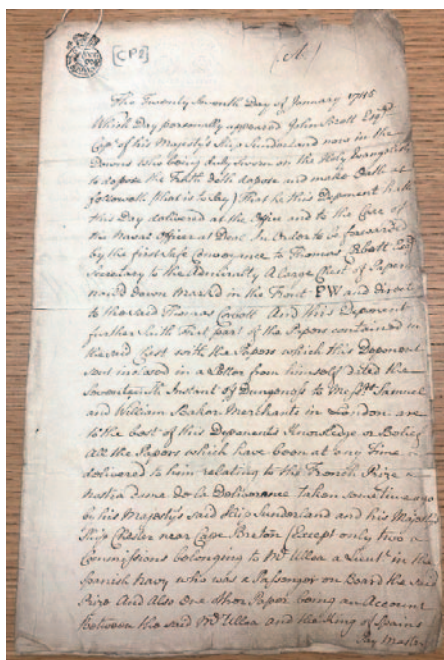 [CP2]
(A.)
The Twenty Seventh Day of January 1745
Which Day personally appeared John Brett Esqr
Capn of his Majesty's Ship Sunderland now in the
Downs who being duly sworn on the Holy Evangelists
to depose the Truth doth depose and make Oath as
followeth (that is to Say) That he this Deponent hath
this Day delivered at the Office and to the Care of
the Naval Officer at Deal In Order to be forwarded
by the first Safe Conveyance to Thomas Esqr
Secretary to the Admiralty A large Chest of Papers
nail'd down marked in the Front PW and directed
to the said Thomas And this Deponent
further Saith That part of the Papers contained in
the said Chest with the Papers which this Deponent
sent inclosed in a Letter from himself dated the
Seventeenth Instant off Dungeness to Messrs Samuel
and William Baker Merchants in London are
to the best of this Deponents Knowledge or Belief
All the Papers which have been at any Time
delivered to him relating to the French Prize
nostra dame de la Deliverance taken sometime ago
by his Majestys said Ship Sunderland and his Majestys
Ship Chester near Cape Breton (Except only two
Commissions belonging to Mr Ulloa a Lieut in the
Spanish Navy who was a Passenger on Board the said
Prize And Also One other Paper being an Account
Between the said Mr Ulloa and the King of Spains
Pay Master